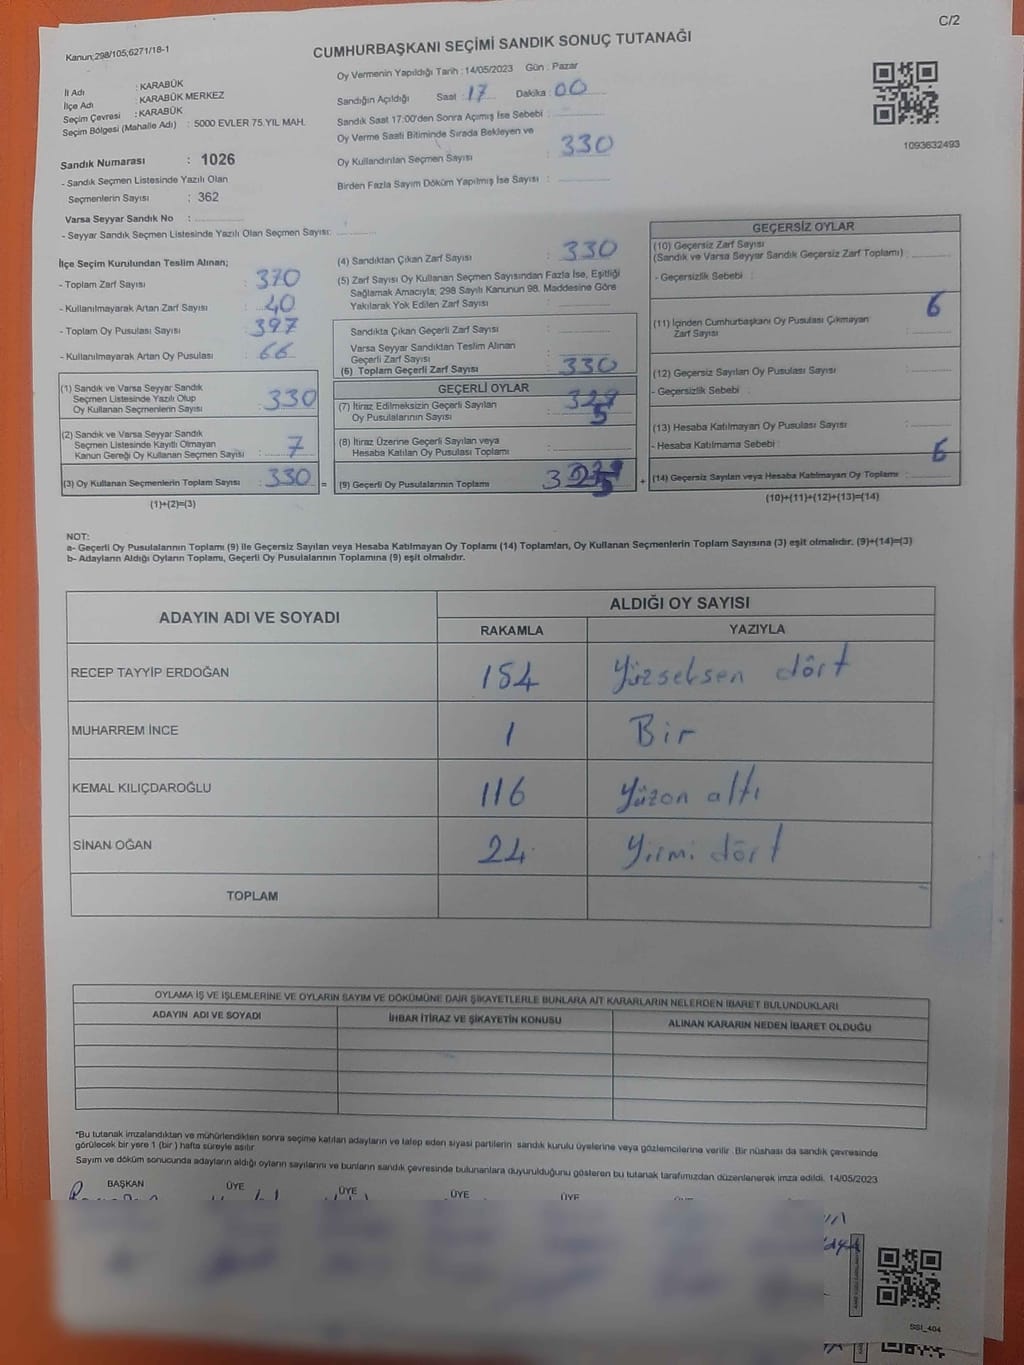 C/2
Kanun;298/105,6271/18-1
CUMHURBAŞKANI SEÇİMİ SANDIK SONUÇ TUTANAĞI
İl Adı : KARABÜK
İlçe Adı : KARABÜK MERKEZ
Seçim Çevresi : KARABÜK
Seçim Bölgesi (Mahalle Adı) : 5000 EVLER 75.YIL MAH.
Sandık Numarası : 1026
- Sandık Seçmen Listesinde Yazılı Olan
Seçmenlerin Sayısı : 362
Varsa Seyyar Sandık No :
- Seyyar Sandık Seçmen Listesinde Yazılı Olan Seçmen Sayısı:
Oy Vermenin Yapıldığı Tarih : 14/05/2023 Gün : Pazar
Sandığın Açıldığı Saat : 17 Dakika : 00
Sandık Saat 17:00'den Sonra Açımış İse Sebebi :
Oy Verme Saati Bitiminde Sırada Bekleyen ve
Oy Kullandırılan Seçmen Sayısı : 330
Birden Fazla Sayım Döküm Yapılmış İse Sayısı :
1093632493
İlçe Seçim Kurulundan Teslim Alınan;
- Toplam Zarf Sayısı : 370
- Kullanılmayarak Artan Zarf Sayısı : 40
- Toplam Oy Pusulası Sayısı : 397
- Kullanılmayarak Artan Oy Pusulası : 66
(1) Sandık ve Varsa Seyyar Sandık
Seçmen Listesinde Yazılı Olup
Oy Kullanan Seçmenlerin Sayısı : 330
(2) Sandık ve Varsa Seyyar Sandık
Seçmen Listesinde Kayıtlı Olmayan
Kanun Gereği Oy Kullanan Seçmen Sayısı : 7
(3) Oy Kullanan Seçmenlerin Toplam Sayısı : 330 =
(1)+(2)=(3)
(4) Sandıktan Çıkan Zarf Sayısı : 330
(5) Zarf Sayısı Oy Kullanan Seçmen Sayısından Fazla İse, Eşitliği
Sağlamak Amacıyla, 298 Sayılı Kanunun 98. Maddesine Göre
Yakılarak Yok Edilen Zarf Sayısı :
Sandıkta Çıkan Geçerli Zarf Sayısı :
Varsa Seyyar Sandıktan Teslim Alınan
Geçerli Zarf Sayısı :
(6) Toplam Geçerli Zarf Sayısı : 330
GEÇERLİ OYLAR
(7) İtiraz Edilmeksizin Geçerli Sayılan
Oy Pusulalarının Sayısı :
(8) İtiraz Üzerine Geçerli Sayılan veya
Hesaba Katılan Oy Pusulası Toplamı :
(9) Geçerli Oy Pusulalarının Toplamı : +
GEÇERSİZ OYLAR
(10) Geçersiz Zarf Sayısı
(Sandık ve Varsa Seyyar Sandık Geçersiz Zarf Toplamı) :
- Geçersizlik Sebebi :
6
(11) İçinden Cumhurbaşkanı Oy Pusulası Çıkmayan
Zarf Sayısı :
(12) Geçersiz Sayılan Oy Pusulası Sayısı :
- Geçersizlik Sebebi :
(13) Hesaba Katılmayan Oy Pusulası Sayısı :
- Hesaba Katılmama Sebebi : 6
(14) Geçersiz Sayılan veya Hesaba Katılmayan Oy Toplamı :
(10)+(11)+(12)+(13)=(14)
NOT:
a- Geçerli Oy Pusulalarının Toplamı (9) ile Geçersiz Sayılan veya Hesaba Katılmayan Oy Toplamı (14) Toplamları, Oy Kullanan Seçmenlerin Toplam Sayısına (3) eşit olmalıdır. (9)+(14)=(3)
b- Adayların Aldığı Oyların Toplamı, Geçerli Oy Pusulalarının Toplamına (9) eşit olmalıdır.
ADAYIN ADI VE SOYADI ALDIĞI OY SAYISI
RAKAMLA YAZIYLA
RECEP TAYYİP ERDOĞAN 184 Yüzseksen dört
MUHARREM İNCE 1 Bir
KEMAL KILIÇDAROĞLU 116 Yüzon altı
SİNAN OĞAN 24 Yirmi dört
TOPLAM
OYLAMA İŞ VE İŞLEMLERİNE VE OYLARIN SAYIM VE DÖKÜMÜNE DAİR ŞİKAYETLERLE BUNLARA AİT KARARLARIN NELERDEN İBARET BULUNDUKLARI
ADAYIN ADI VE SOYADI İHBAR İTİRAZ VE ŞİKAYETİN KONUSU ALINAN KARARIN NEDEN İBARET OLDUĞU
*Bu tutanak imzalandıktan ve mühürlendikten sonra seçime katılan adayların ve talep eden siyasi partilerin sandık kurulu üyelerine veya gözlemcilerine verilir. Bir nüshası da sandık çevresinde
görülecek bir yere 1 (bir ) hafta süreyle asılır
Sayım ve döküm sonucunda adayların aldığı oyların sayılarını ve bunların sandık çevresinde bulunanlara duyurulduğunu gösteren bu tutanak tarafımızdan düzenlenerek imza edildi. 14/05/2023
BAŞKAN ÜYE ÜYE ÜYE ÜYE
SSI_404